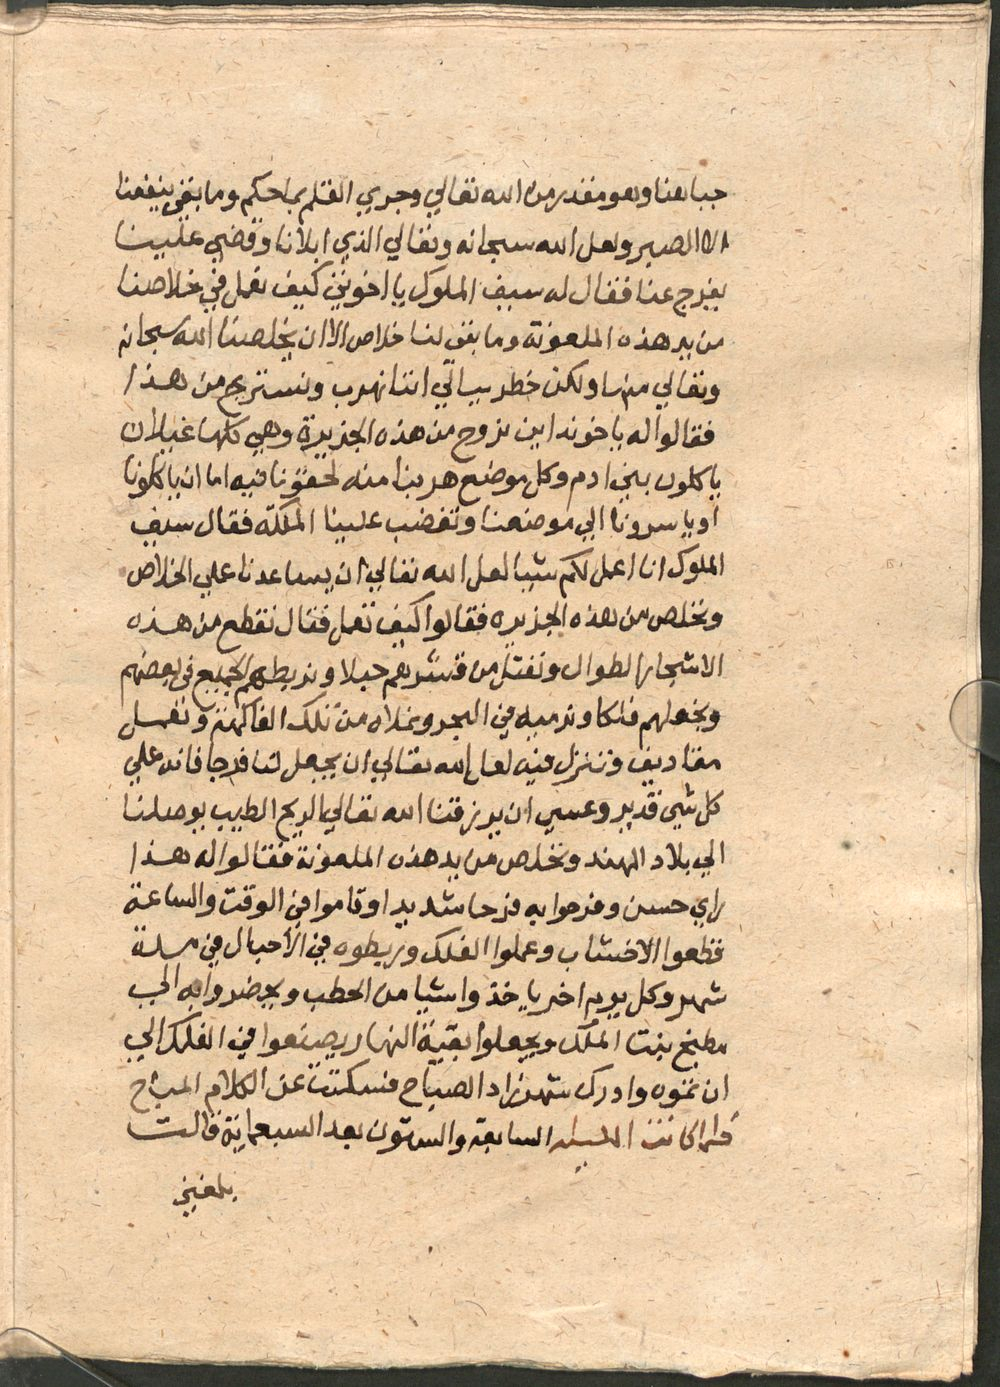 جباهنا وهو مقدر من الله تعالي وجري القلم بما حكم وما بقي ينفعنا
الا الصبر ولعل الله سبحانه وتعالي الذي ابلانا وقضي علينا
يفرج عنا فقال له سيف الملوك يا اخوتي كيف نعمل في خلاصنا
من يد هذه الملعونة وما بقي لنا خلاص الا ان يخلصنا الله سبحانه
وتعالي منها ولكن خطر ببالي اننا نهرب ونستريح من هذا
فقالوا له يا خوند اين نروح من هذه الجزيرة وهي كلها غيلان
ياكلون بني ادم وكل موضع هربنا منه لحقونا فيه اما ان ياكلونا
او ياسرونا الي موضعنا وتغضب علينا الملكة فقال سيف
الملوك انا اعمل لكم شيا لعل الله تعالي ان يساعدنا علي الخلاص
ونخلص من هذه الجزيره فقالوا كيف نعمل فقال نقطع من هذه
الاشجار الطوال ونفتل من قشرهم حبلا ونربطهم الجميع في بعضهم
ونجعلهم فلكا ونرميه في البحر ونملاه من تلك الفاكهة ونعمل
مقاديف وننزل فيه لعل الله تعالي ان يجعل لنا فرجا فانه علي
كل شي قدير وعسي ان يرزقنا الله تعالي الريح الطيب يوصلنا
الي بلاد الهند ونخلص من يد هذه الملعونة فقالوا له هذا
راي حسن وفرحوا به فرحا شديدا وقاموا في الوقت والساعة
قطعوا الاخشاب وعملوا الفلك وربطوه في الاحبال في مدة
شهر وكل يوم اخر ياخذوا شيا من الحطب ويحضروا به الي
مطبخ بنت الملك ويجعلوا بقية النهار يصنعوا في الفلك الي
ان تموه وادرك شهرزاد الصباح فسكتت عن الكلام المباح
فلما كانت الليله السابعة والستون بعد السبعماية قالت
بلغني